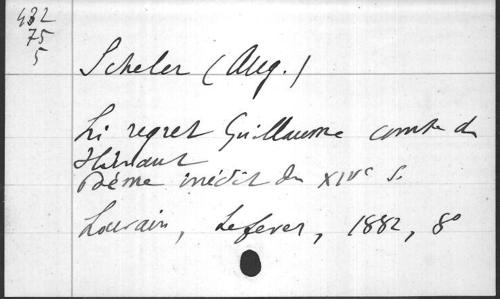 432
75
5
Scheler (Aug.)
Li regret Guillaume comte de
Hainaut
Poème inédit du XIVe s.
Louvain, Lefever, 1882, 8º